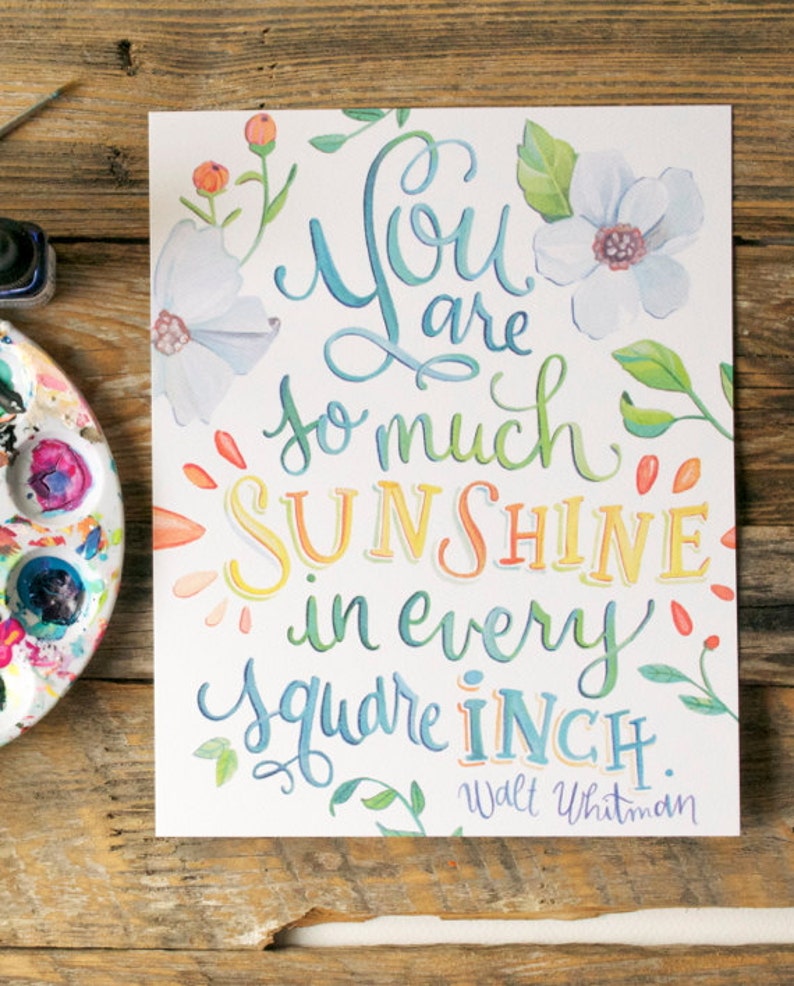 You
are
so much
SUNSHINE
in every
square INCH.
Walt Whitman